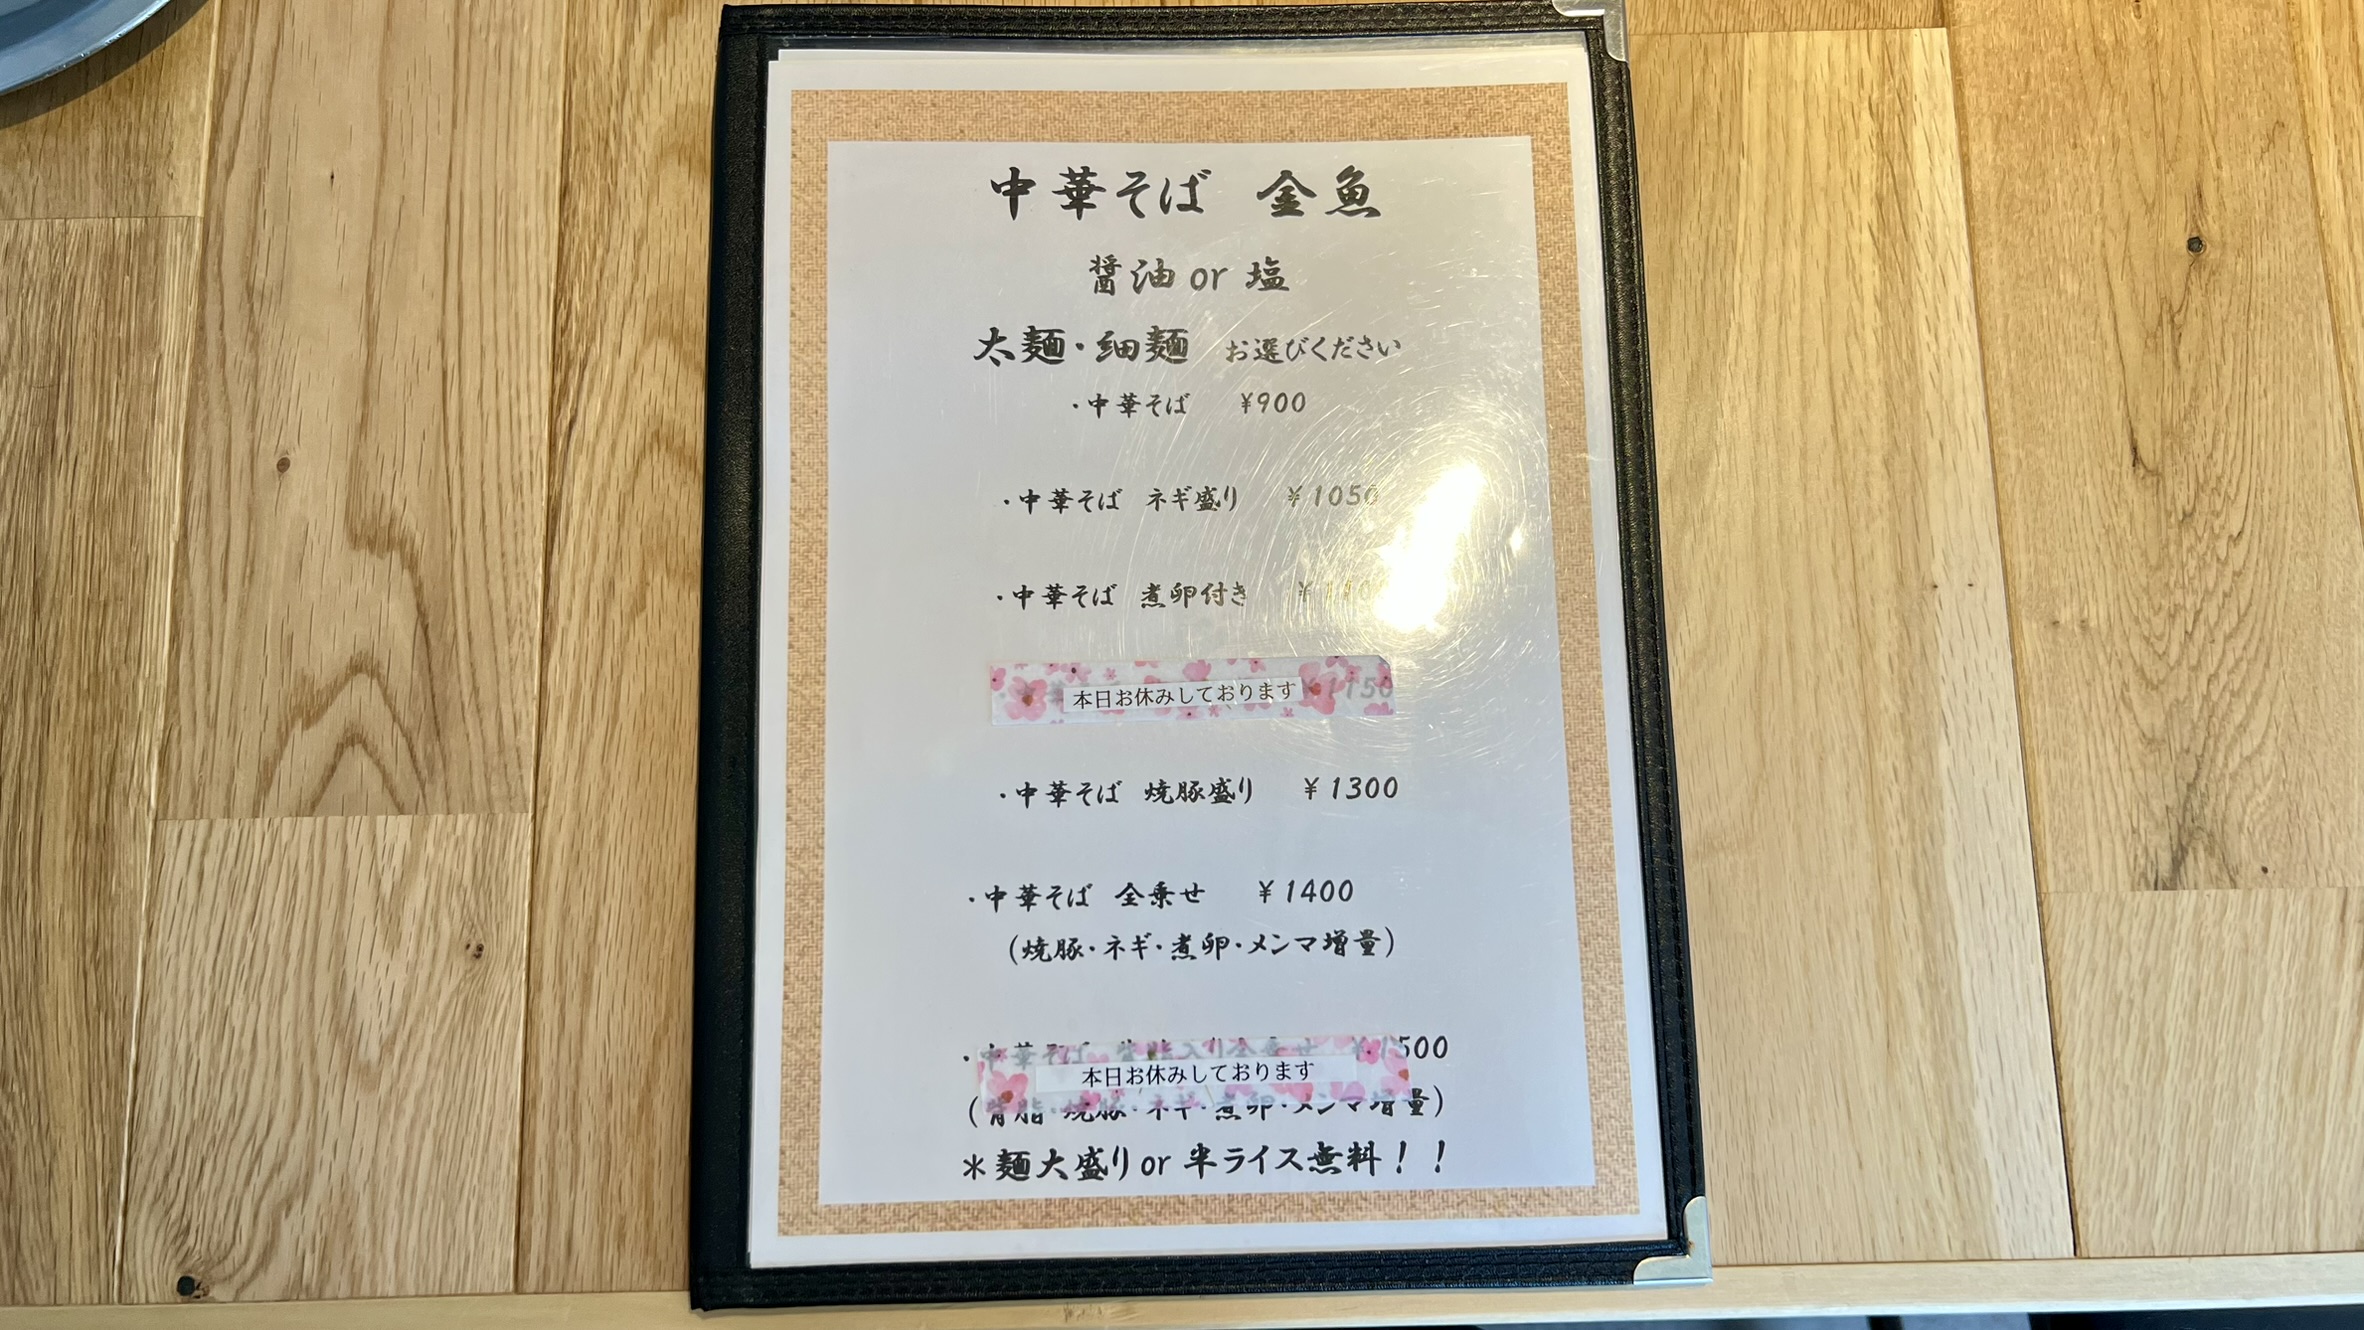 中華そば 金魚
醤油 or 塩
太麺・細麺 お選びください
・中華そば ¥900
・中華そば ネギ盛り ¥1050
・中華そば 煮卵付き
本日お休みしております ¥1150
・中華そば 焼豚盛り ¥1300
・中華そば 全乗せ ¥1400
(焼豚・ネギ・煮卵・メンマ増量)
・中華そば 背脂入り全乗せ ¥1500
本日お休みしております
(背脂・焼豚・ネギ・煮卵・メンマ増量)
＊麺大盛り or 半ライス無料！！